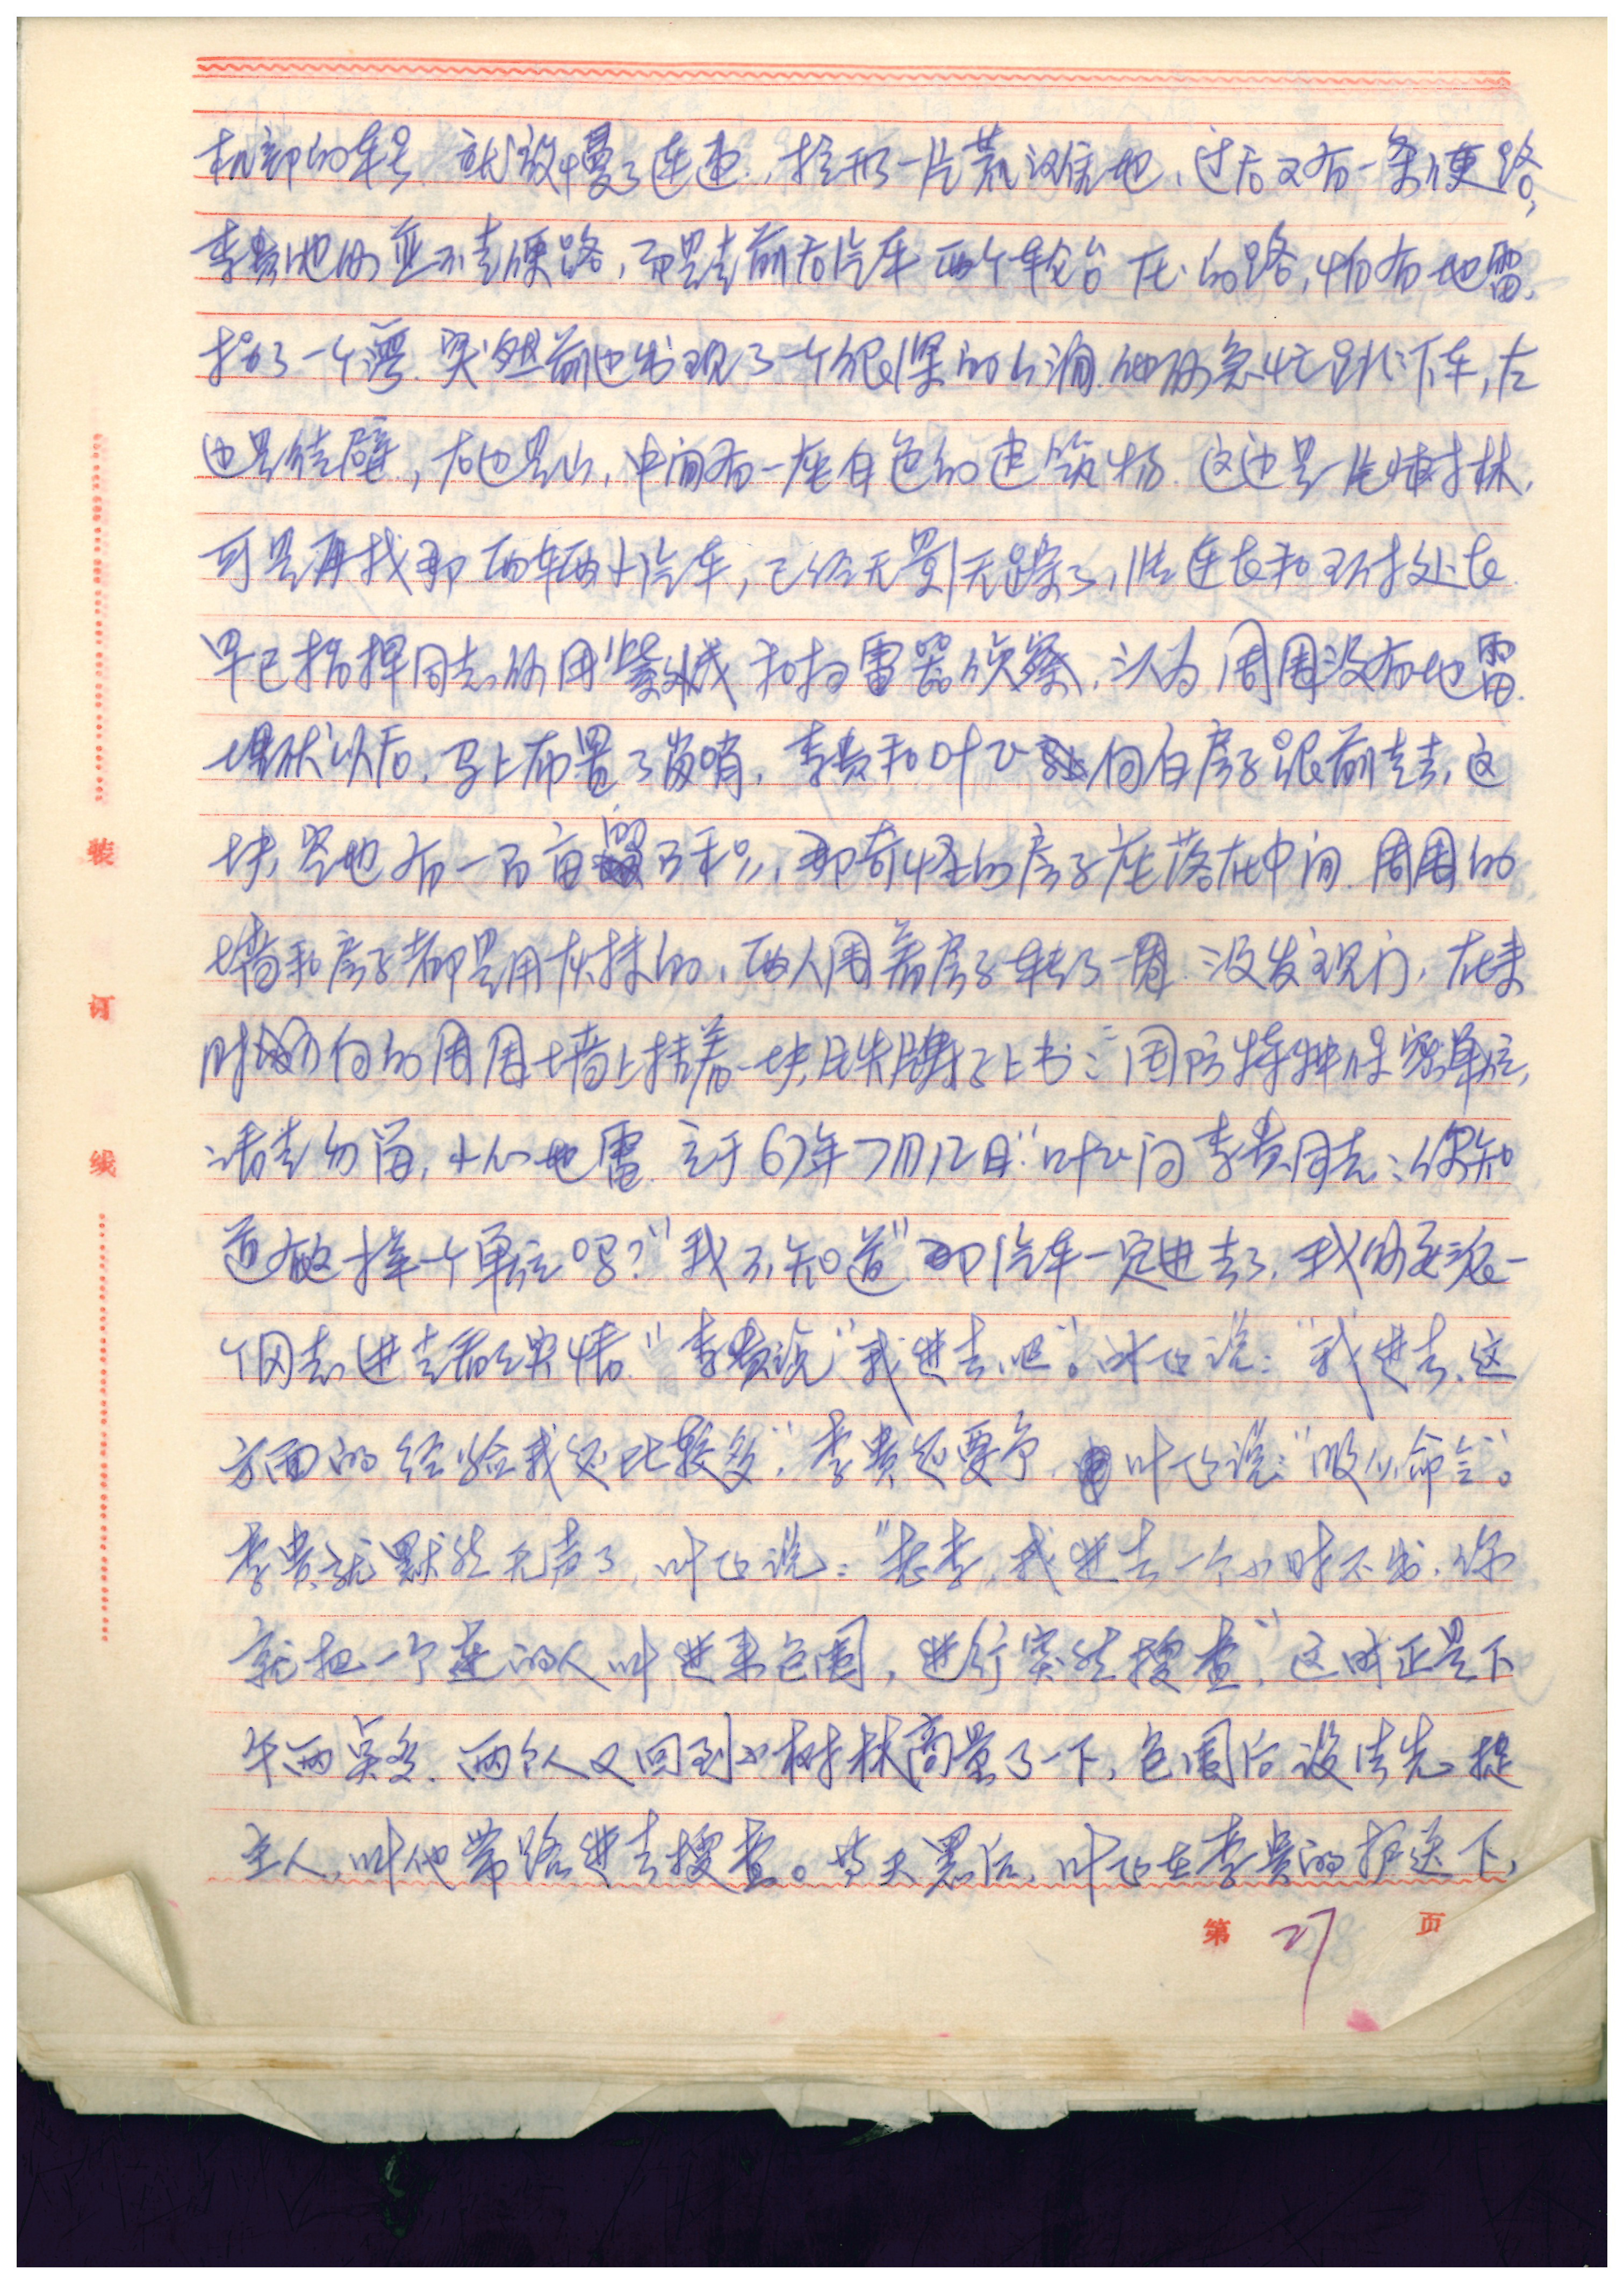 机部的车号 就放慢了速度，拴形一片荒漠洼地，过后又有一条便路，
李贵他们並不走便路，而是走前面汽车两个车轮台在的路，怕有地雷，
拐了一个湾，突然前边出现了一个很深的山涧，他们急忙跳下车，左
边是绝壁，右边是山，中间有一座白色的建筑物，这边是一片树林，
可是再找那两辆小汽车，已经无影无踪了，连长和处长
早已指挥同志们用器械和扫雷器侦察，认为周围没有地雷
埋伏以后，马上布置了岗哨，李贵和叶飞向白房子跟前走去，这
块岂地有一百亩留方米，那奇怪的房子座落在中间，周围的
墙和房子都是用灰抹的，两人围着房子转了一周，没发现门，在来
时方向的周围墙上挂着一块铁牌子上书：“国防特种保密单位，
请走勿留，小心地雷，立于67年7月12日”叶飞问李贵同志：“你知
道有这样一个单位吗？”“我不知道”“那汽车一定进去了，我们要派一
个同志进去看个实情”李贵说“我进去吧”。叶飞说：“我进去，这
方面的经验我还比较多”，李贵还要争，叶飞说：“服从命令”。
李贵就默然无声了，叶飞说：“老李，我进去一个小时不出，你
就把一个连的人叫进来包围，进行突然搜查”，这时正是下
午两点多，两个人又回到小树林商量了一下，包围后设法先捉
主人，叫他带路进去搜查。当天黑后，叶飞在李贵的护送下，
装
订
线
第 27 页